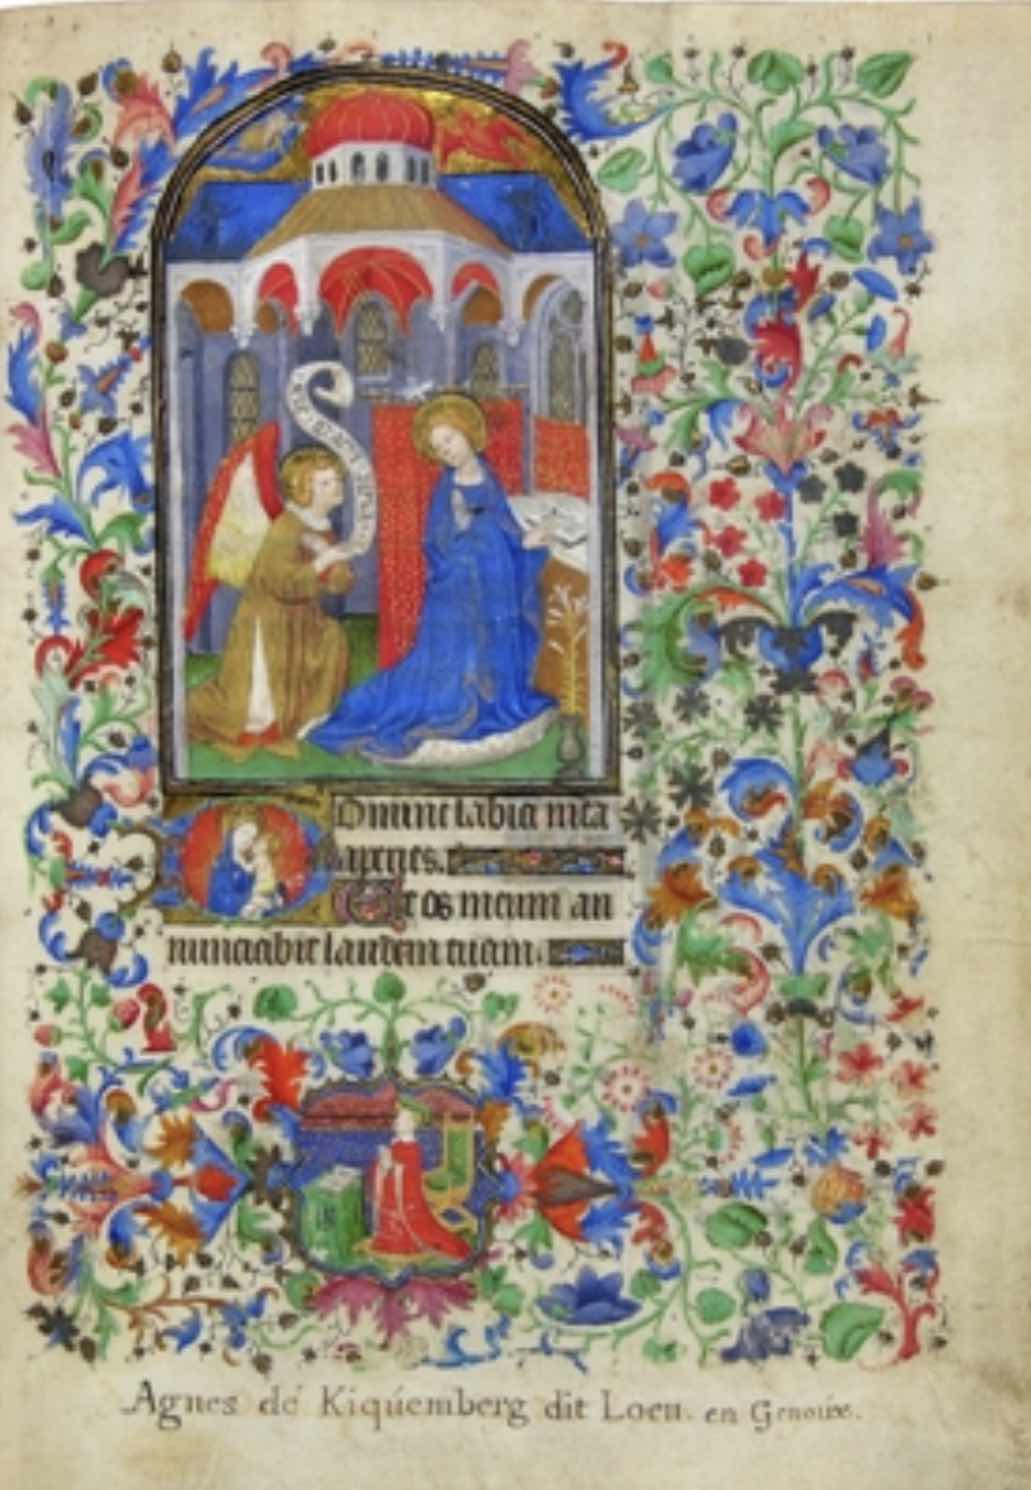 Domine labia mea
aperies.
Et os meum an
nunciabit laudem tuam.
Agnes de Kiquemberg dit Loen. en Genoüx.